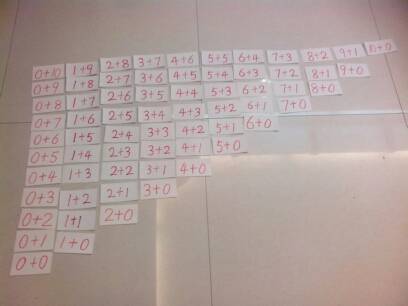 0+10 1+9 2+8 3+7 4+6 5+5 6+4 7+3 8+2 9+1 10+0
0+9 1+8 2+7 3+6 4+5 5+4 6+3 7+2 8+1 9+0
0+8 1+7 2+6 3+5 4+4 5+3 6+2 7+1 8+0
0+7 1+6 2+5 3+4 4+3 5+2 6+1 7+0
0+6 1+5 2+4 3+3 4+2 5+1 6+0
0+5 1+4 2+3 3+2 4+1 5+0
0+4 1+3 2+2 3+1 4+0
0+3 1+2 2+1 3+0
0+2 1+1 2+0
0+1 1+0
0+0